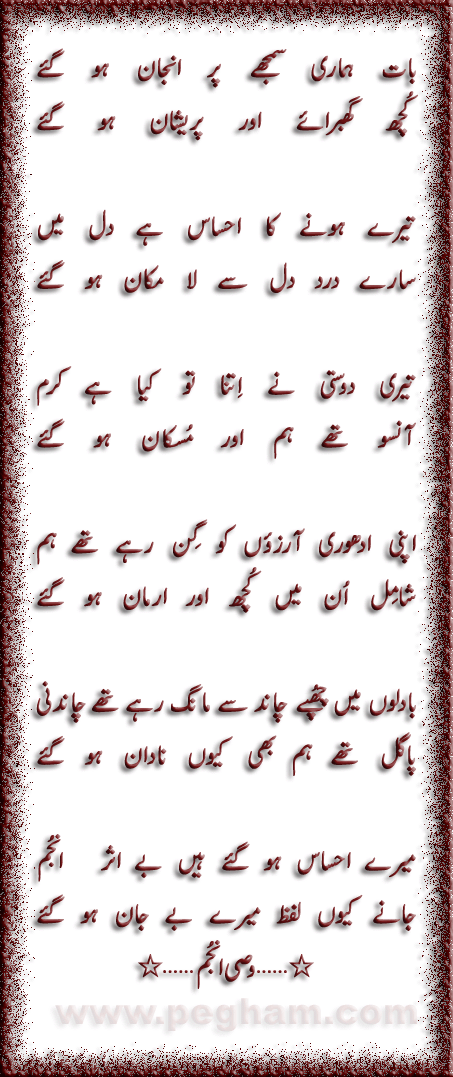 بات ہماری سمجھے پر انجان ہو گئے
کُچھ گھبرائے اور پریشان ہو گئے
تیرے ہونے کا احساس ہے دل میں
سارے درد دل سے لا مکان ہو گئے
تیری دوستی نے اِتنا تو کیا ہے کرم
آنسو تھے ہم اور مُسکان ہو گئے
اپنی ادھوری آرزؤں کو گِن رہے تھے ہم
شامِل اُن میں کُچھ اور ارمان ہو گئے
بادلوں میں چھُپے چاند سے مانگ رہے تھے چاندنی
پاگل تھے ہم بھی کیوں نادان ہو گئے
میرے احساس ہو گئے ہیں بے اثر انجُم
جانے کیوں لفظ میرے بے جان ہو گئے
☆......وصی انجُم......☆
www.pegham.com